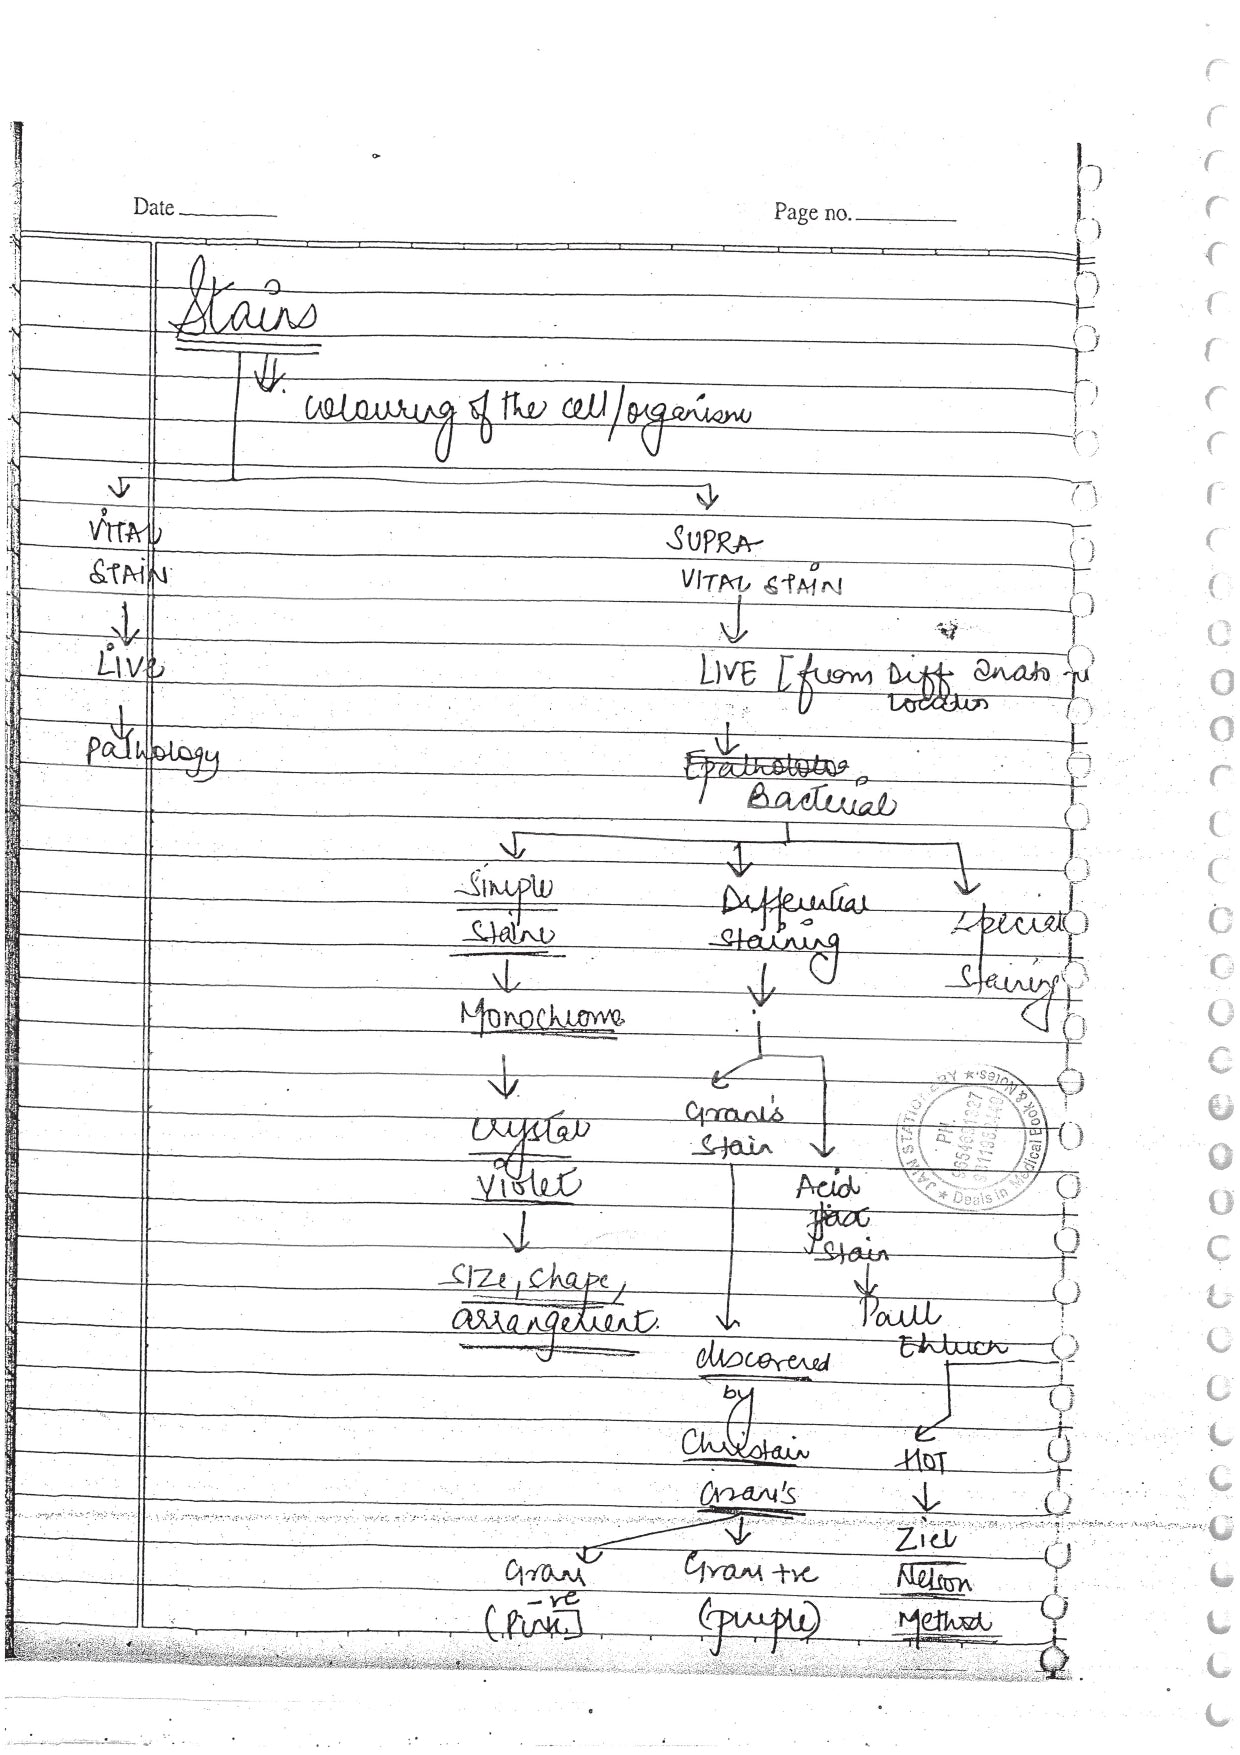 Date
Page no.
Stains
colouring of the cell/organism
VITAL
STAIN
LIVE
Pathology
SUPRA
VITAL STAIN
LIVE [from Diff anato
Bacterial
Simple
Stain
Monochrome
Crystal
Violet
Size, shape,
arrangement.
Differential
Staining
Gram's
Stain
discovered
by
Christain
Gram's
Gram
-ve
(Pink)
Gram +ve
(purple)
Acid
Stain
Paul
Ehluch
HOT
Ziel
Nelson
Method
Special
Staining
JAIN STATIONERY ★ Book & Notes ★ Deals in Medical
PH.